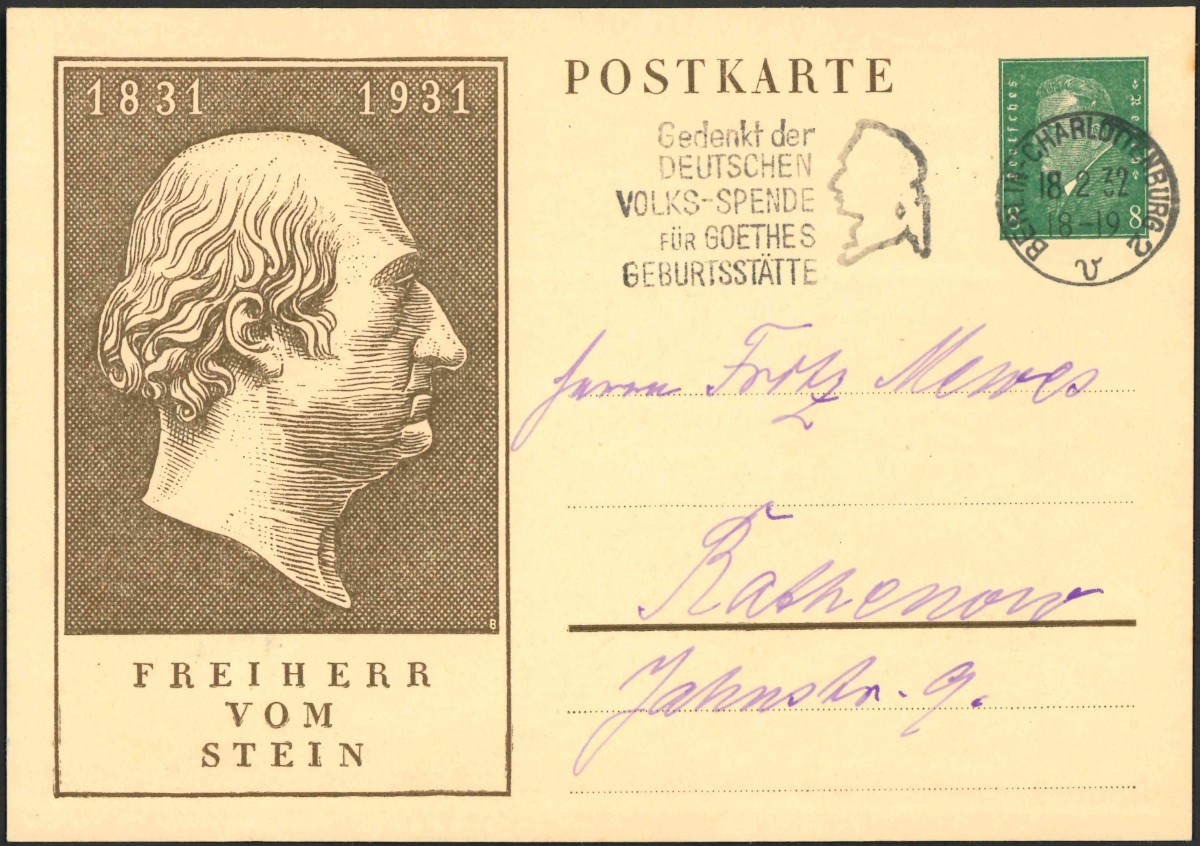 1831 1931
FREIHERR
VOM
STEIN
B
POSTKARTE
Gedenkt der
DEUTSCHEN
VOLKS-SPENDE
FÜR GOETHES
GEBURTSSTÄTTE
Deutsches
8 8
BERLIN-CHARLOTTENBURG 2
18.2.32
18-19
v
Herrn Fritz Mewes
Rathenow
Jahnstr. 9.